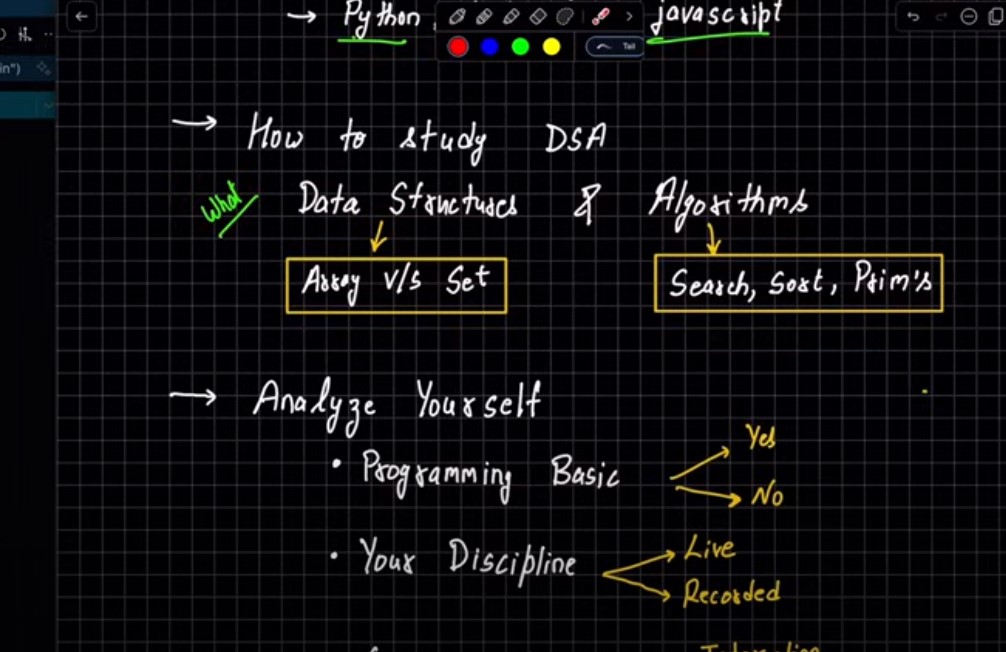 in")
→ Python javascript
Tail
→ How to study DSA
What Data Structures & Algorithms
Array v/s Set
Search, Sort, Prim's
→ Analyze Yourself
• Programming Basic
Yes
No
• Your Discipline
Live
Recorded